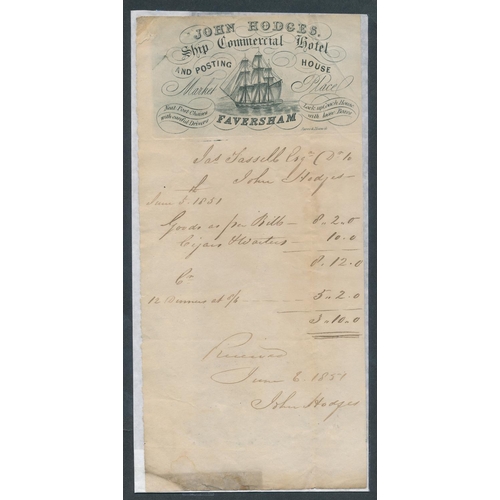 JOHN HODGES.
Ship Commercial Hotel
AND POSTING HOUSE
Market Place
FAVERSHAM
Neat Post Chaises
with careful Drivers
Lock up Coach House
with loose Boxes
Jas Tassell Esqr Dr to
John Hodges
June 3. 1851
Goods as per Bill 8.2.0
Cigars & Waiters 10.0
8.12.0
Cr
12 Dinners at 5.2.0
3.10.0
Received
June 6 1851
John Hodges